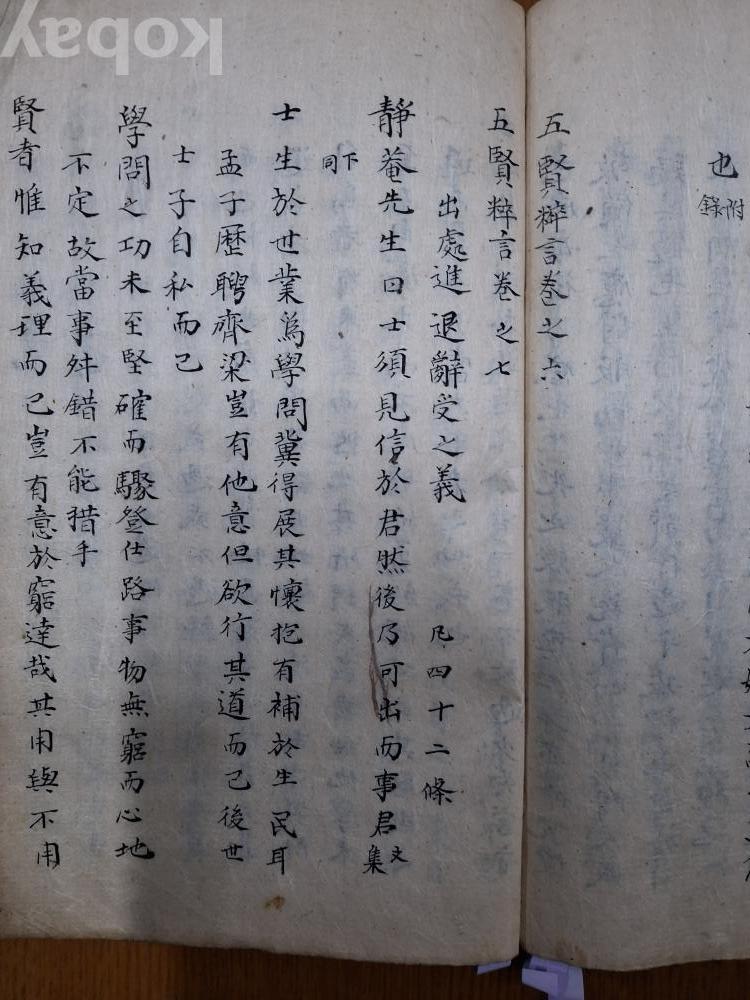 kobay
也 附錄
五賢粹言卷之六
五賢粹言卷之七
出處進退辭受之義 凡四十二條
靜菴先生曰士須見信於君然後乃可出而事君 文集
下同
士生於世業爲學問冀得展其懷抱有補於生民耳
孟子歷聘齊梁豈有他意但欲行其道而已後世
士子自私而已
學問之功未至堅確而驟登仕路事物無窮而心地
不定故當事舛錯不能措手
賢者惟知義理而已豈有意於窮達哉其用與不用